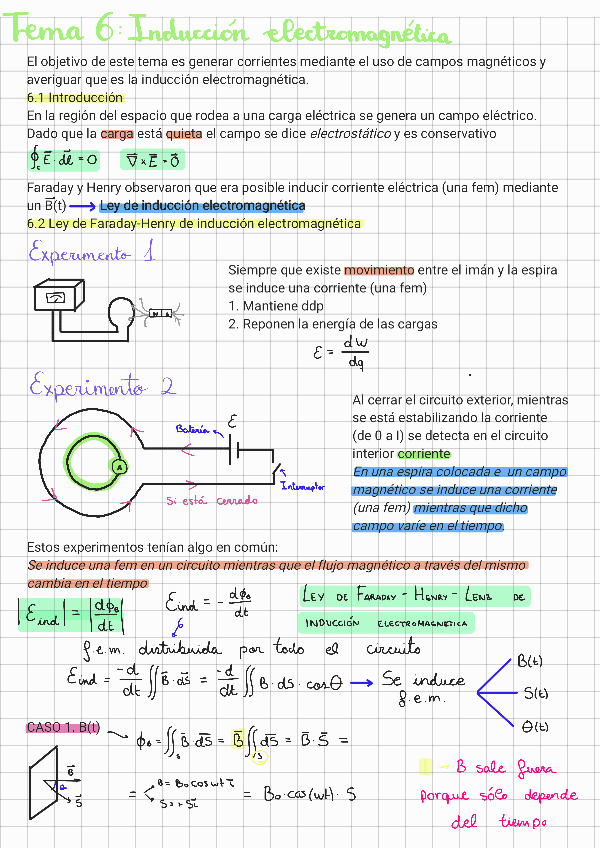 Tema 6: Inducción electromagnética
El objetivo de este tema es generar corrientes mediante el uso de campos magnéticos y
averiguar que es la inducción electromagnética.
6.1 Introducción
En la región del espacio que rodea a una carga eléctrica se genera un campo eléctrico.
Dado que la carga está quieta el campo se dice electrostático y es conservativo
∮c E⃗ · dl⃗ = 0   ∇⃗ × E⃗ = 0⃗
Faraday y Henry observaron que era posible inducir corriente eléctrica (una fem) mediante
un B⃗(t) → Ley de inducción electromagnética
6.2 Ley de Faraday-Henry de inducción electromagnética
Experimento 1
Siempre que existe movimiento entre el imán y la espira
se induce una corriente (una fem)
1. Mantiene ddp
2. Reponen la energía de las cargas
ε = dW/dq
Experimento 2
Batería
ε
A
Interruptor
Si está cerrado
Al cerrar el circuito exterior, mientras
se está estabilizando la corriente
(de 0 a I) se detecta en el circuito
interior corriente
En una espira colocada e un campo
magnético se induce una corriente
(una fem) mientras que dicho
campo varíe en el tiempo.
Estos experimentos tenían algo en común:
Se induce una fem en un circuito mientras que el flujo magnético a través del mismo
cambia en el tiempo
|εind| = |dϕB/dt|   εind = - dϕB/dt
LEY DE FARADAY - HENRY - LENZ DE
INDUCCIÓN ELECTROMAGNETICA
f.e.m. distribuida por todo el circuito
εind = -d/dt ∬ B⃗ · dS⃗ = -d/dt ∬ B · dS · cosθ → Se induce
f.e.m.
B(t)
S(t)
θ(t)
CASO 1. B(t)
ϕB = ∬s B⃗ dS⃗ = B⃗ ∬s dS⃗ = B⃗ · S⃗ =
B⃗
S⃗
B = B0 cos wt
= B0 · cos(wt) · S
B sale fuera
porque sólo depende
del tiempo